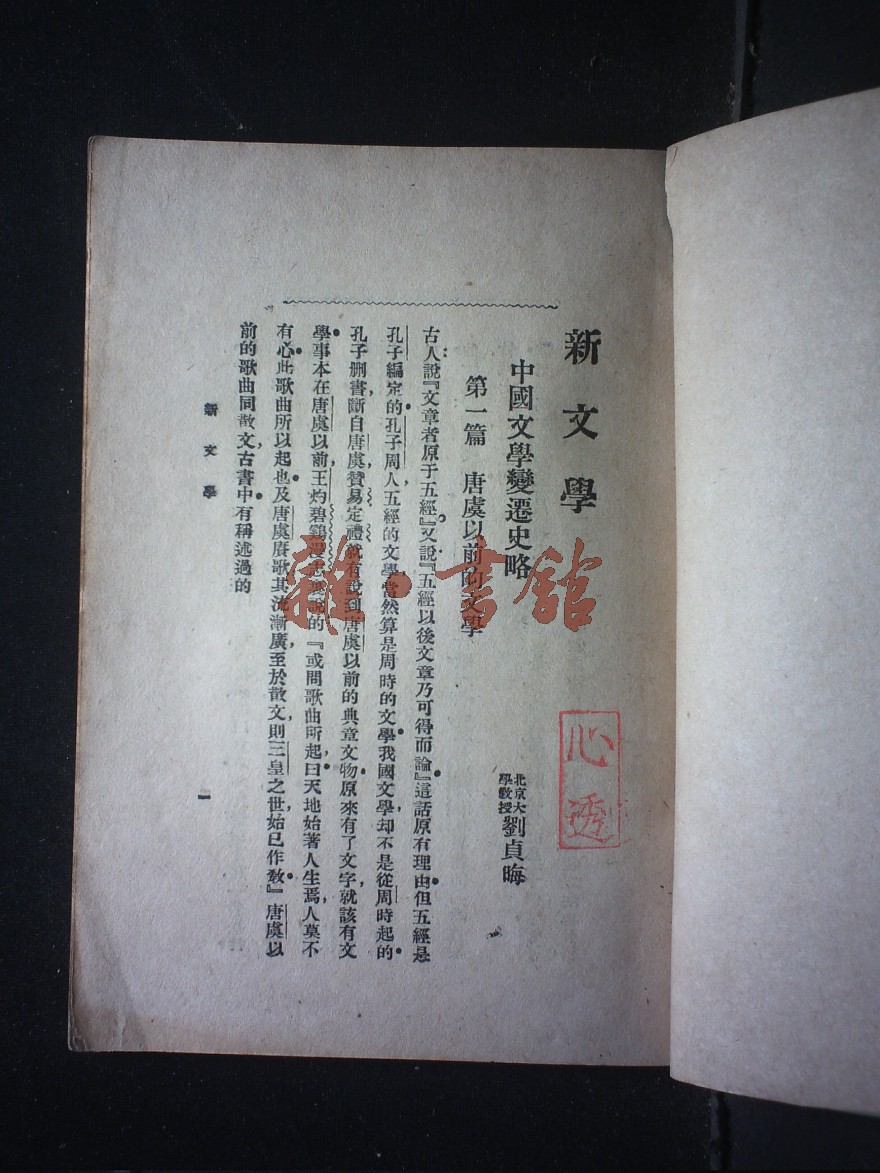 新文學
中國文學變遷史略
北京大學教授 劉貞晦
第一篇 唐虞以前的文學
古人說『文章者原于五經』又說『五經以後文章乃可得而論』這話原有理由但五經是
孔子編定的孔子周人五經的文學當然算是周時的文學我國文學却不是從周時起的
孔子刪書斷自唐虞贊易定禮就有說到唐虞以前的典章文物原來有了文字就該有文
學事本在唐虞以前王灼碧鷄漫志說的『或問歌曲所起曰天地始著人生焉人莫不
有心此歌曲所以起也及唐虞賡歌其流漸廣至於散文則三皇之世始已作教』唐虞以
前的歌曲同散文古書中有稱述過的
新文學
一
心透
雜·書館